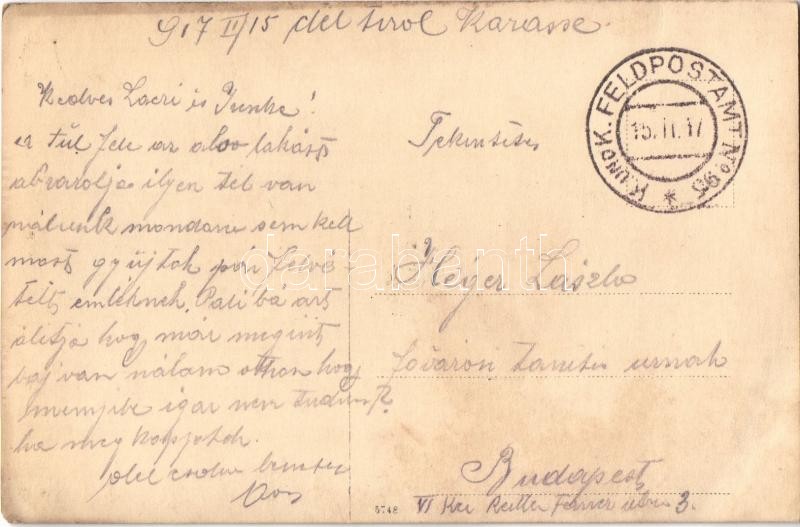 917 II/15 del tirol Karasse.
Kedves Laczi és
a túl fele az also lakást
abrázolja ilyen tel van
nálunk mondani sem kell
most gyüjtök pár felvé-
telt emléknek. Pali bá azt
álitja hogy már megint
baj van nálam otthon hogy
menyibe igaz nem tudom?
ha meg kapjatok.
ölel csokol benetek
K. UND K. FELDPOSTAMT No 95
15.II.17
Tekintetes
Heger László
fővárosi tanító urnak
Budapest
VI Ker Reitter Ferenc utca 3.
5748
darabanth.com